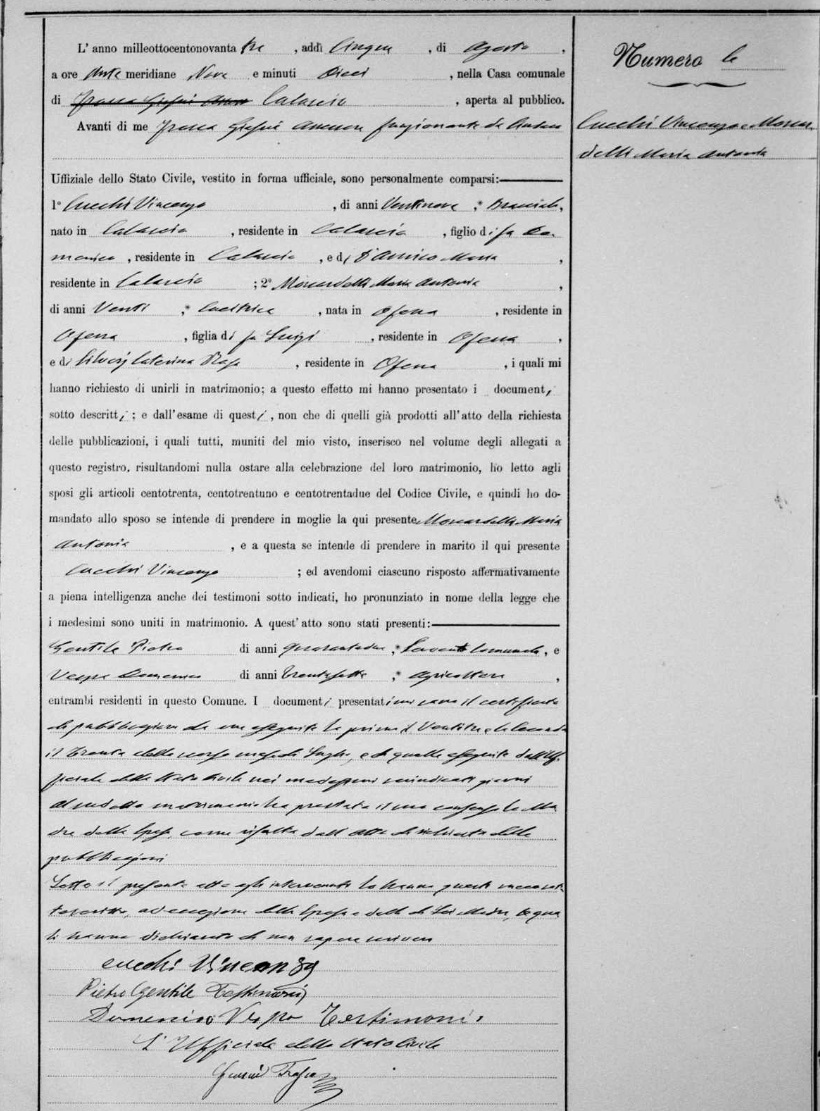 L'anno milleottocentonovanta tre, addì Cinque, di Agosto,
a ore Ante meridiane Nove e minuti Dieci, nella Casa comunale
di Calascio, aperta al pubblico.
Avanti di me Assessore funzionante da Sindaco
Uffiziale dello Stato Civile, vestito in forma ufficiale, sono personalmente comparsi:
1° Cucchi Vincenzo, di anni Ventinove, * Bracciale,
nato in Calascio, residente in Calascio, figlio di fu Do-
menico, residente in Calascio, e di D'Amico Maria
residente in Calascio; 2° Moscardelli Maria Antonia,
di anni Venti, * Cucitrice, nata in Ofena, residente in
Ofena, figlia di fu Luigi, residente in Ofena,
e di Silveri Caterina, residente in Ofena, i quali mi
hanno richiesto di unirli in matrimonio; a questo effetto mi hanno presentato i documenti
sotto descritti; e dall'esame di questi, non che di quelli già prodotti all'atto della richiesta
delle pubblicazioni, i quali tutti, muniti del mio visto, inserisco nel volume degli allegati a
questo registro, risultandomi nulla ostare alla celebrazione del loro matrimonio, ho letto agli
sposi gli articoli centotrenta, centotrentuno e centotrentadue del Codice Civile, e quindi ho do-
mandato allo sposo se intende di prendere in moglie la qui presente Moscardelli Maria
Antonia, e a questa se intende di prendere in marito il qui presente
Cucchi Vincenzo; ed avendomi ciascuno risposto affermativamente
a piena intelligenza anche dei testimoni sotto indicati, ho pronunziato in nome della legge che
i medesimi sono uniti in matrimonio. A quest'atto sono stati presenti:
Gentile Pietro di anni quarantadue, * Servente Comunale, e
Vespa Domenico di anni trentasette, * Agricoltore,
entrambi residenti in questo Comune. I documenti presentatimi sono il certificato
di pubblicazioni da me eseguite la prima il Ventitre e la seconda
il trenta dello scorso mese di Luglio, e di quelle eseguite dall'Uf-
ficiale dello Stato Civile nei medesimi giorni
Al sudetto matrimonio ha prestato il suo consenso la Ma-
dre della Sposa come risulta dall'atto di richiesta delle
pubblicazioni
Letto il presente atto agli intervenuti lo hanno questi meco sot-
toscritto, ad eccezione della Sposa e della di Lei Madre, le qua-
li hanno dichiarato di non sapere scrivere
cucchi Vincenzo
Pietro Gentile Testimonio
Domenico Vespa Testimonio
L'Uffiziale dello Stato Civile
Numero 6
Cucchi Vincenzo e Moscar-
delli Maria Antonia